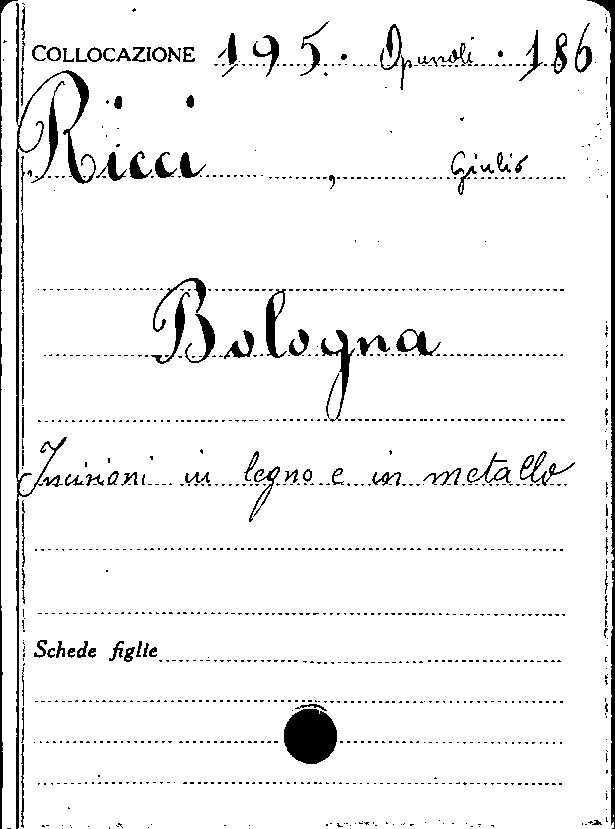 COLLOCAZIONE 195. Opuscoli . 186
Ricci , Giulio
Bologna
Incisioni in legno e in metallo
Schede figlie